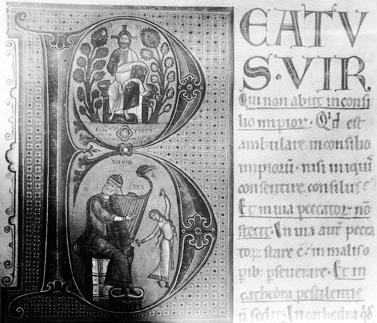 BEATVS
VIR
Qui non abiit inconsi
lio impior. Q'd est
ambulare inconsilio
impiorū. nisi iniqui
consentire consiliis?
Et inuia peccator nō
stetit. In uia aut pecca
tor stare ē. in malis o
ꝑseuerare. Et in
cathedra pestilentie
n̄ sedit. In cathedra
DAVID
REX